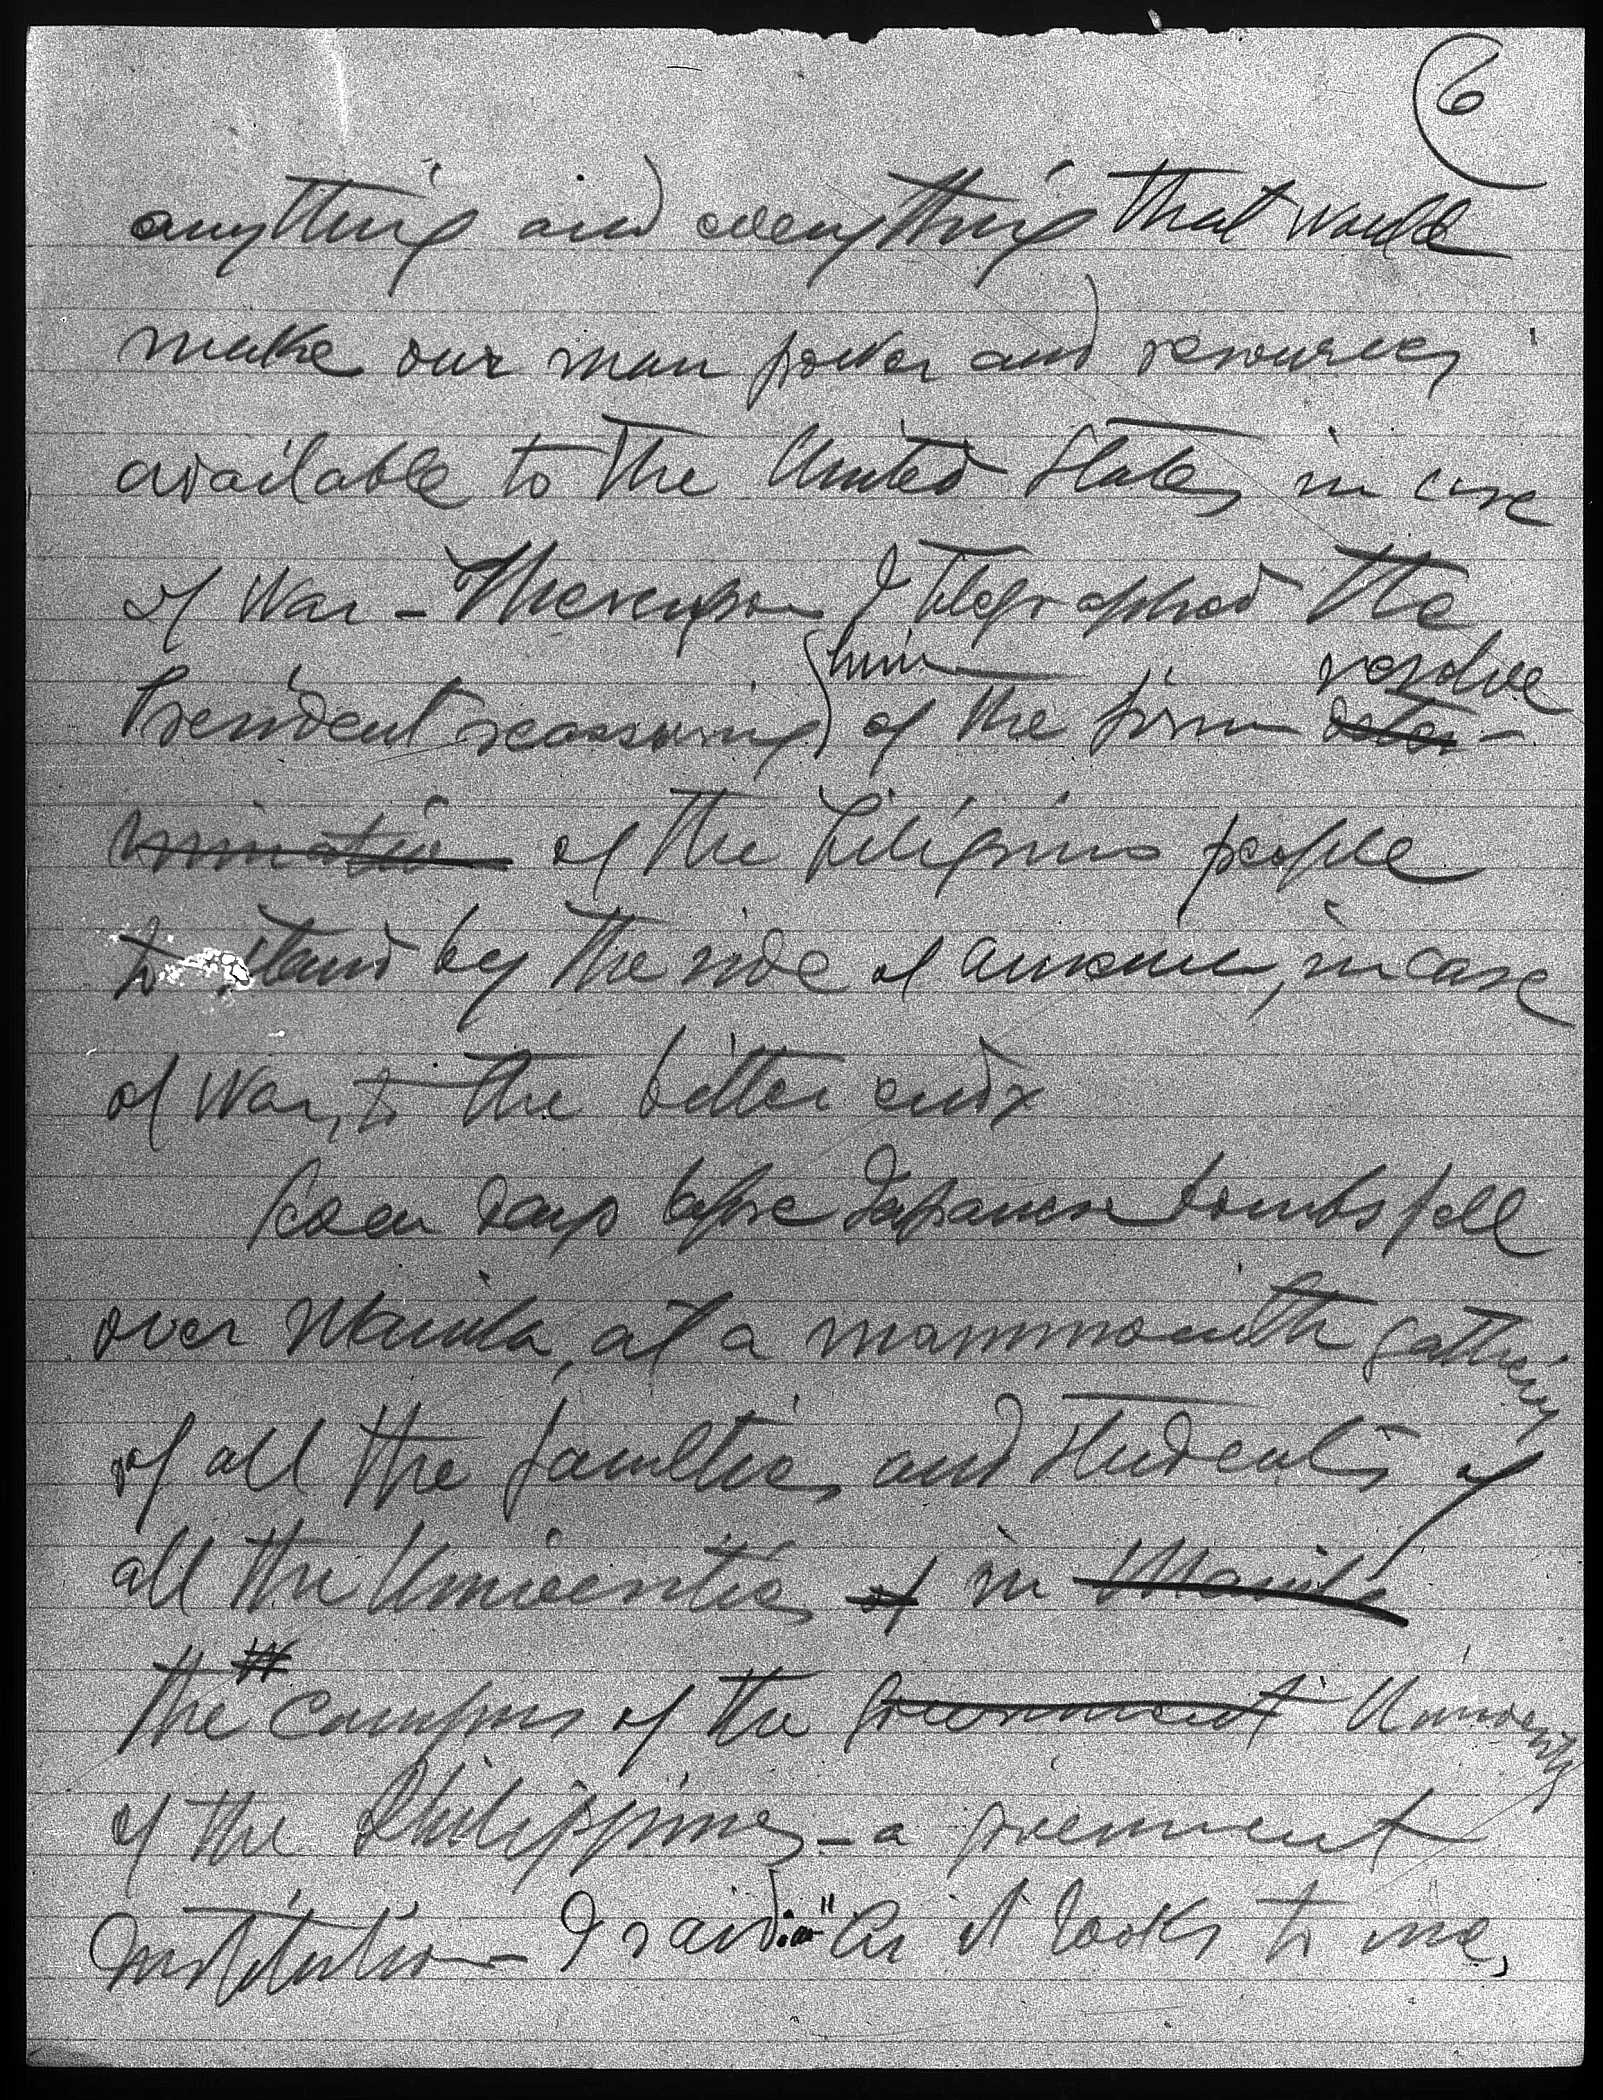 6
anything and everything that would
make our man power and resources
available to the United States in case
of War – Thereupon I telegraphed the
him resolve
President reassuring of the firm deter-
mination of the Filipino people
to stand by the side of America, in case
of War, to the bitter end x
Even days before Japanese bombs fell
over Manila, at a mammouth gathering
of all the faculties and students of
all the Universities of in Manila
the campus of the Government University
of the Philippines – a government
institution – I said: "As it looks to me,